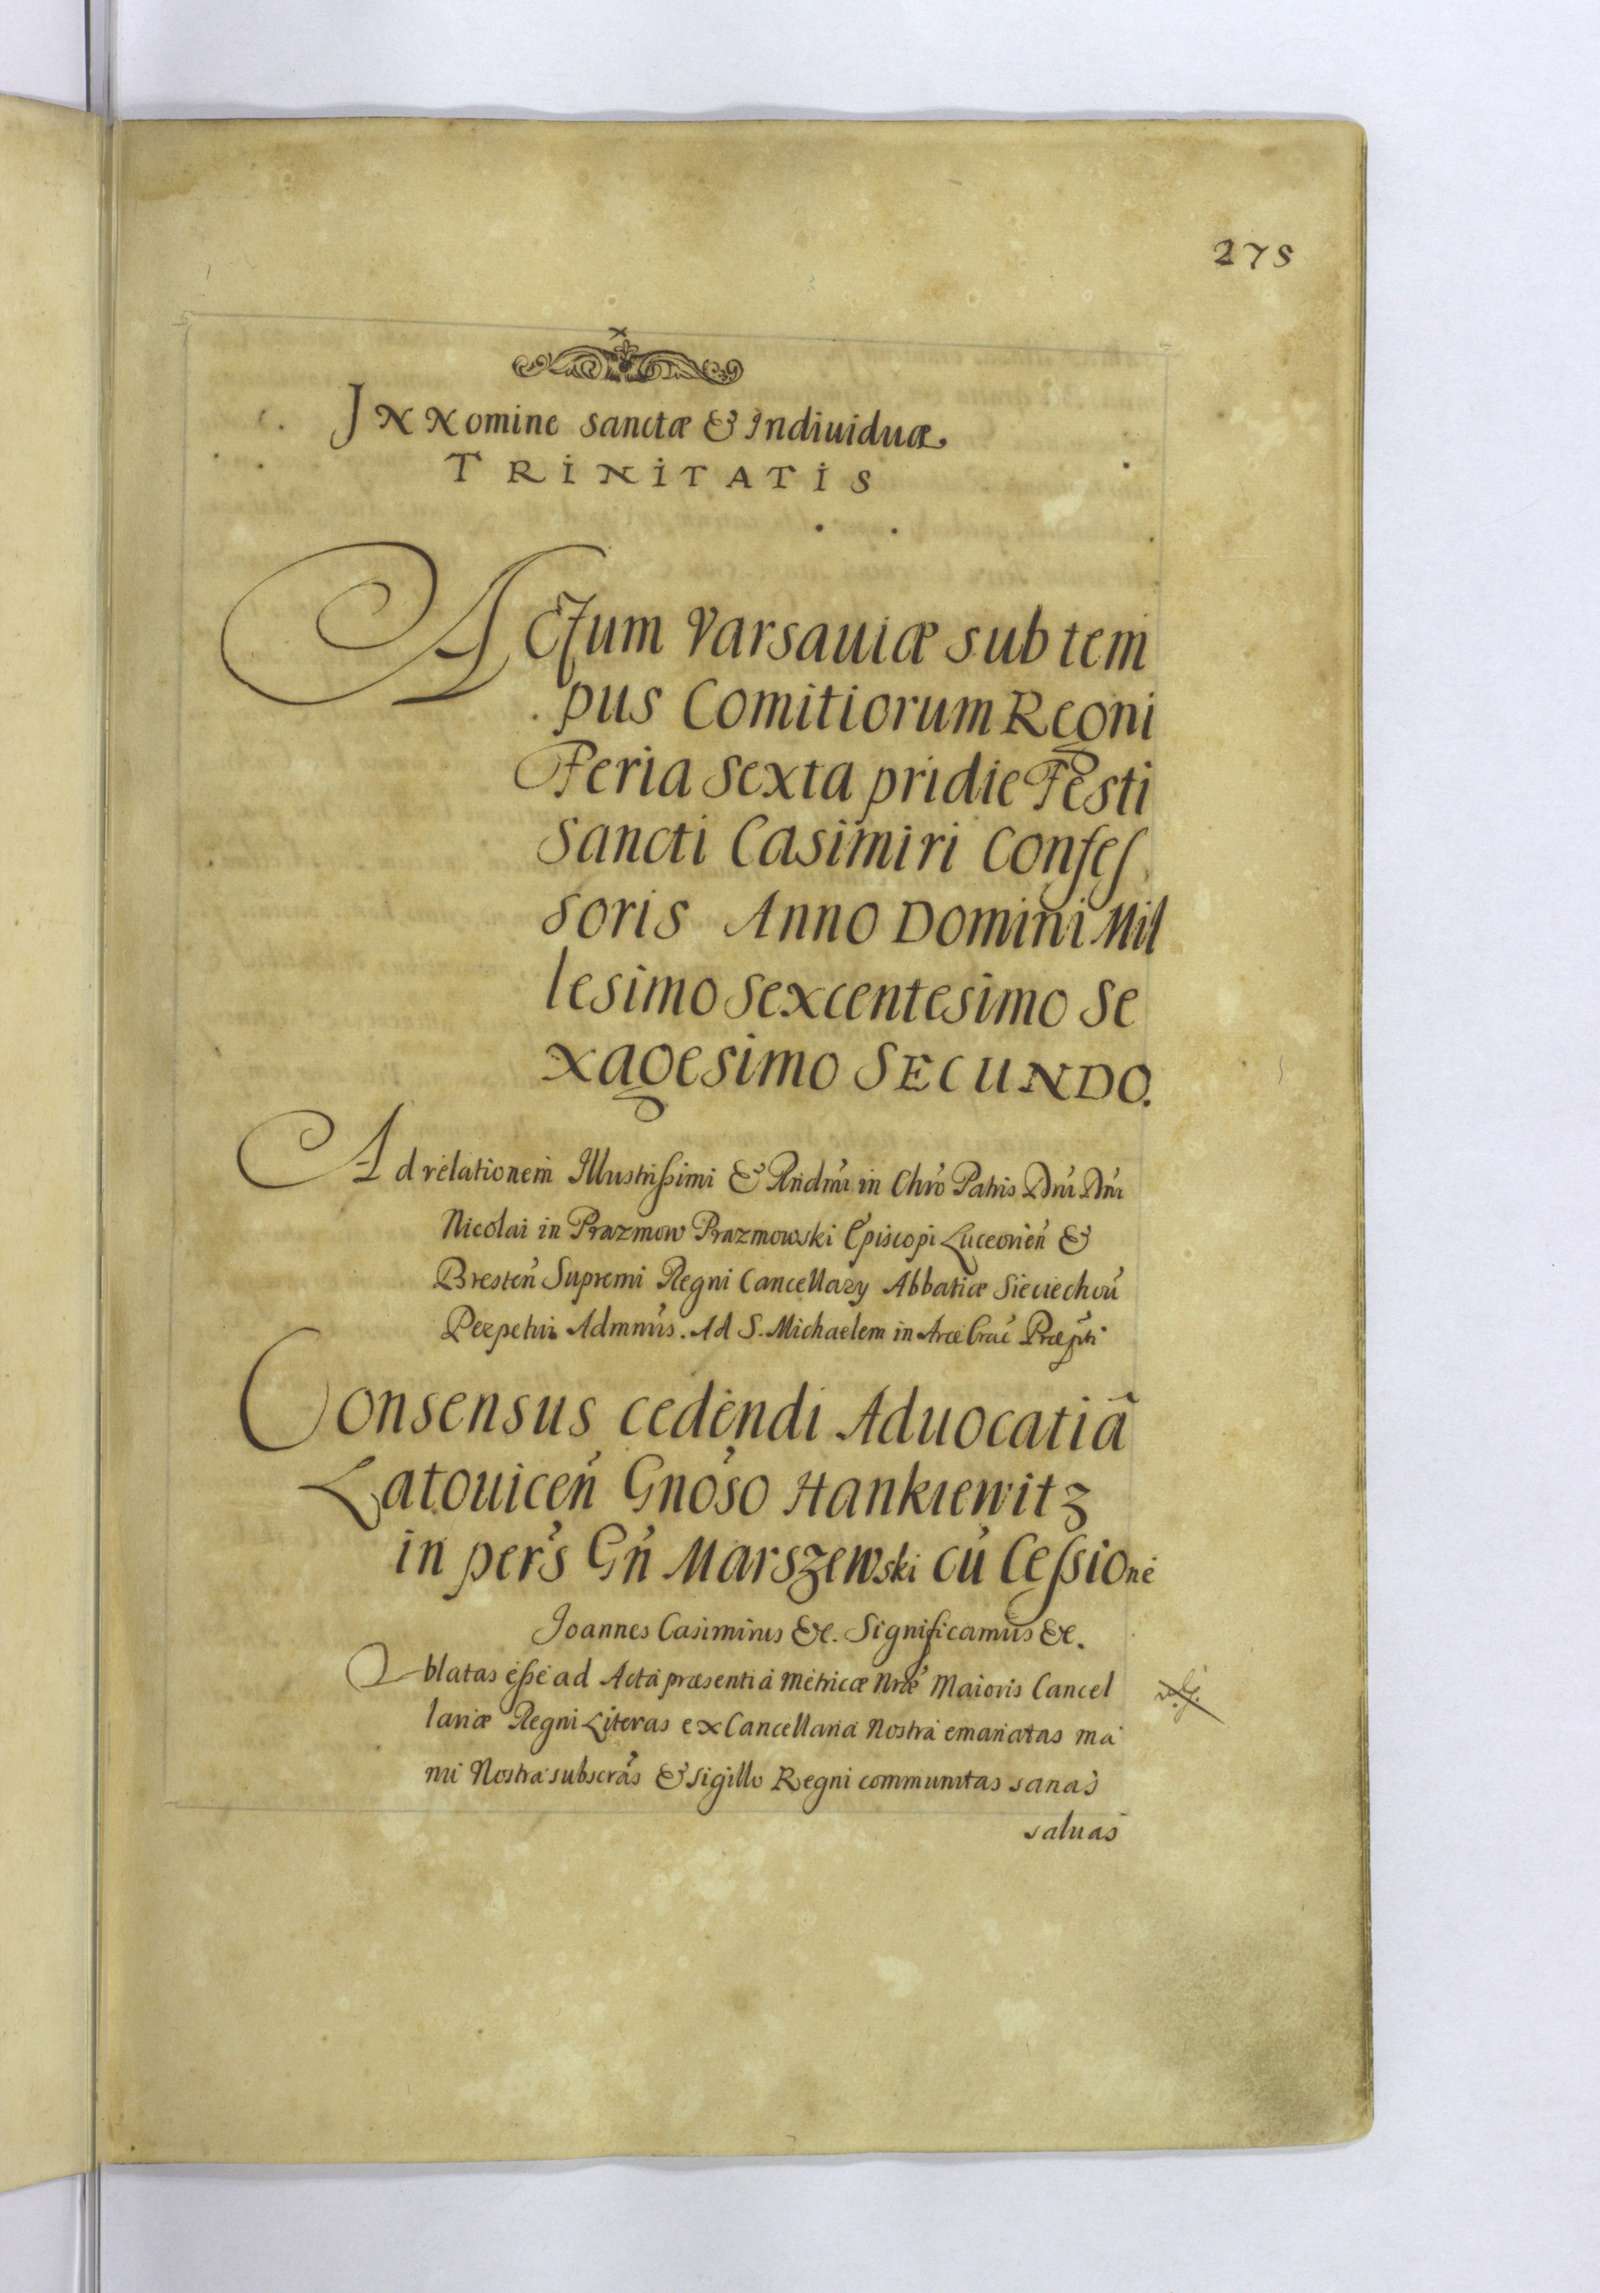 275
JN Nomine sanctæ & Indiuiduæ
TRINITATIS
ACtum Varsauiæ sub tem
pus Comitiorum Regni
Feria Sexta pridie Festi
Sancti Casimiri Confes
soris Anno Domini Mil
lesimo Sexcentesimo Se
xagesimo SECUNDO.
Ad relationem Illustrissimi & Rndmi in Chro Patris Dni Dni
Nicolai in Prazmow Prazmowski Episcopi Luceorien &
Bresten Supremi Regni Cancellary Abbatiæ Sieciechou
Perpetui Admnris. Ad S. Michaelem in Arce Crac Præpti
Consensus cedendi Aduocatiã
Latouicen Gnoso Hankiewitz
in pers Gn Marszewski cu Cessione
Joannes Casimirus &c. Significamus &c.
Oblatas esse ad Acta præsentia Metricæ Nræ Maioris Cancel
lariæ Regni Literas ex Cancellaria Nostra emanatas ma
nu Nostra subscras & sigillo Regni communitas sanas
saluas